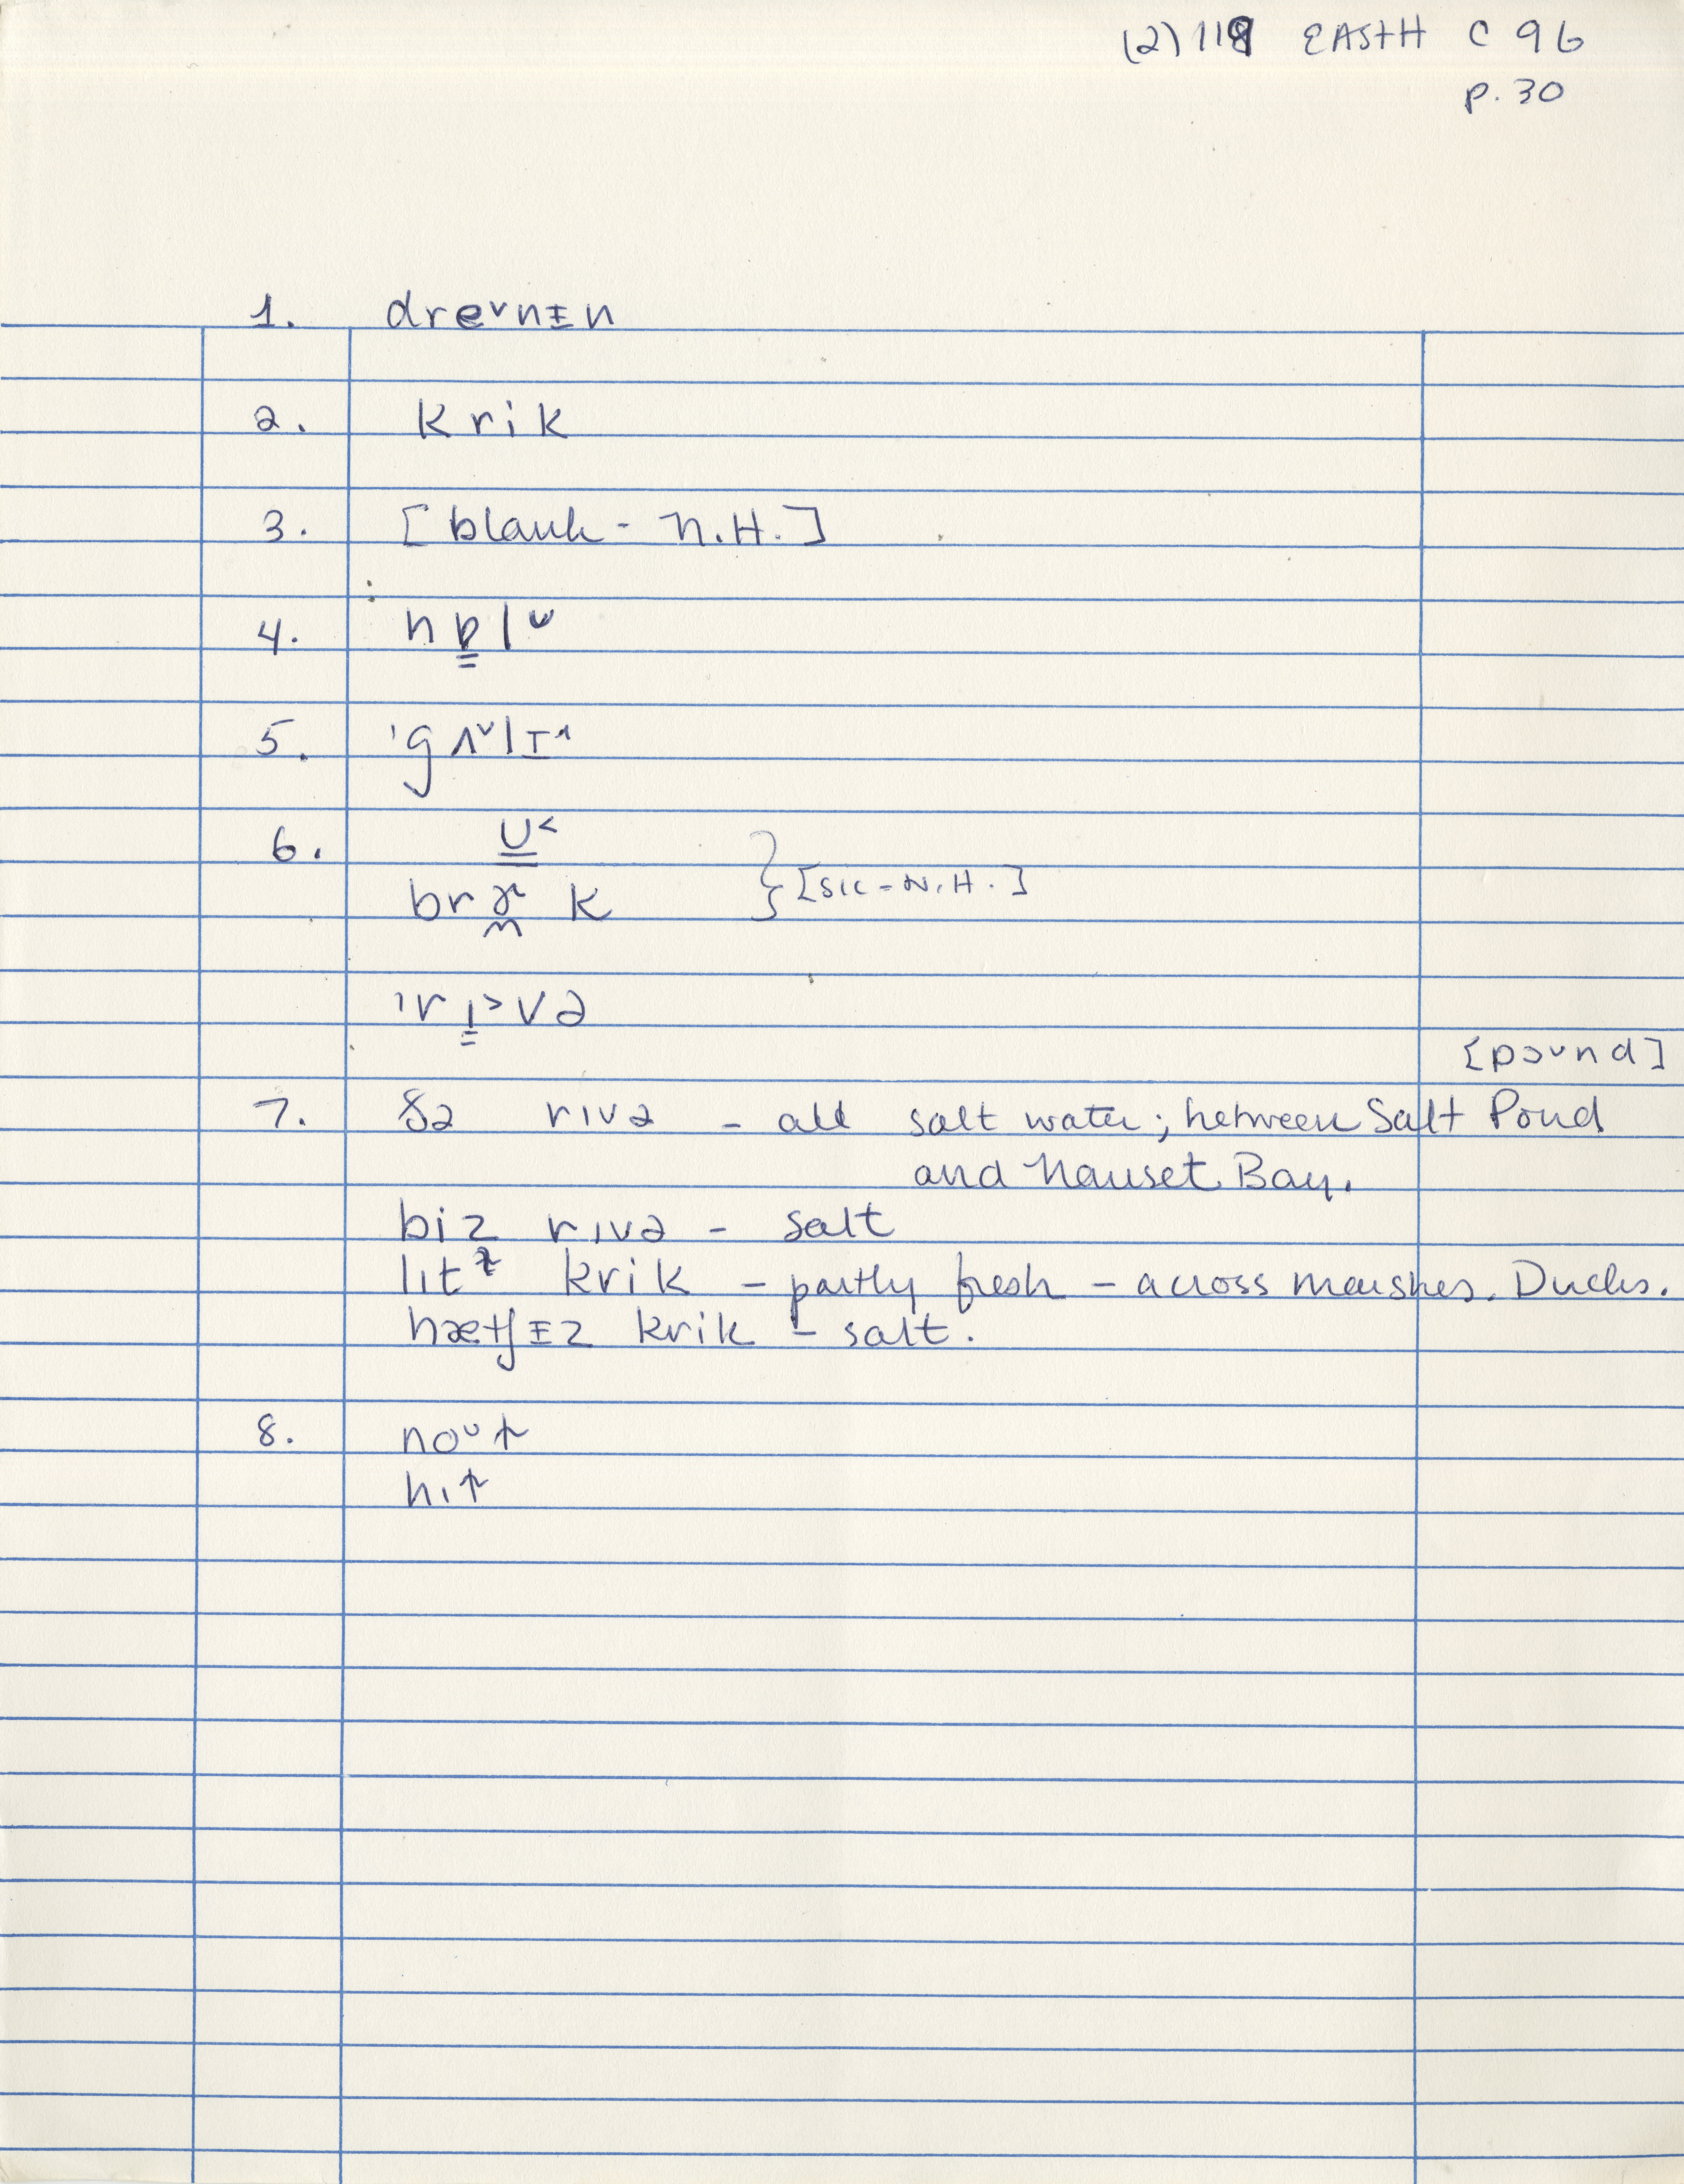 (2) 118 EASTH C 96
p. 30
1. dreᵛnɪ̵n
2. krik
3. [blank - N.H.]
4. nɒ̳lᵕ
5. 'gʌᵛlɪ^
6. U̳˂
br k } [sic - N.H.]
'rɪ̳˃və
[pound]
7. ðə rɪvə - all salt water; between Salt Pond
and Nauset Bay.
biz rɪvə - salt
lɪtᶻ krik - partly fresh - across marshes. Ducks.
hætʃɪ̵z krik - salt.
8. noᵘtʃ
hɪt